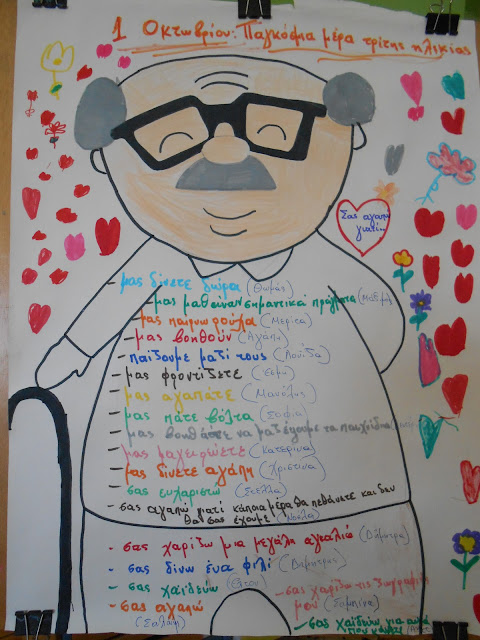 1 Οκτωβρίου: Παγκόσμια μέρα τρίτης ηλικίας
Σας αγαπώ
γιατί...
- μας δίνετε δώρα (Θωμάς)
- μας μαθαίνουν σημαντικά πράγματα
- μας παίρνω ρούλα (Μερκα)
- μας βοηθούν (Αγάπη)
- παίζουμε μαζί τους (Λουίζα)
- μας φροντίζετε
- μας αγαπάτε (Μανόλης)
- μας πάτε βόλτα (Σοφία)
- μας βοηθάτε να μαζέψουμε τα παιχνίδια
- μας μαγειρεύετε (Κατερίνα)
- μας δίνετε αγάπη (Χριστίνα)
- σας ευχαριστώ (Στέλλα)
- σας αγαπώ γιατί κάποια μέρα θα πεθάνετε και δεν
θα σας έχουμε
- σας χαρίζω μια μεγάλη αγκαλιά (Δήμητρα)
- σας δίνω ένα φιλί (Δημήτρης)
- σας χαϊδεύω
- σας χαρίζω τις ζωγραφιές
μου
- σας αγαπώ
- σας χαϊδεύω για αυτά
που κάνατε